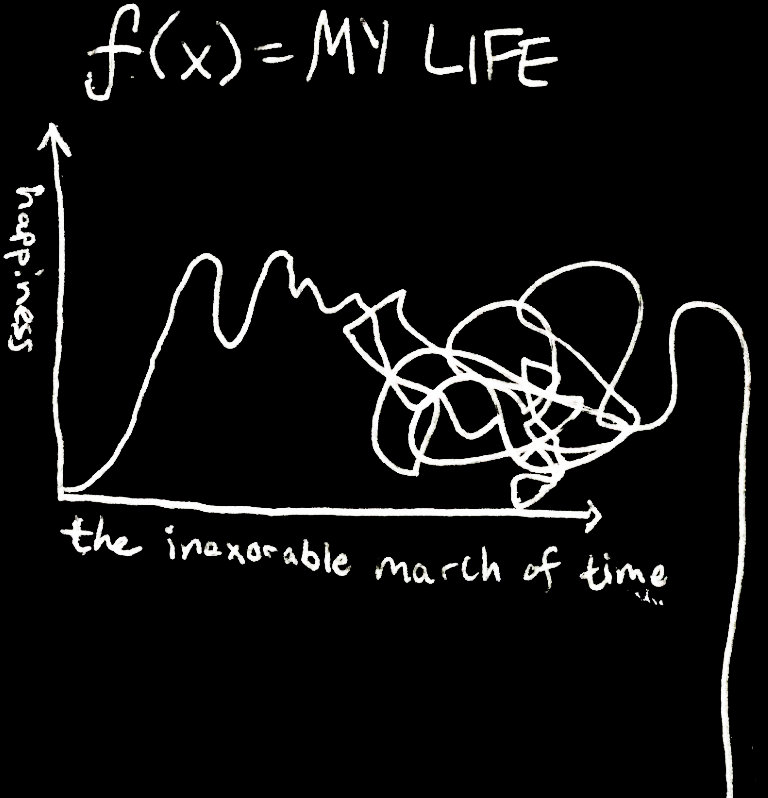 f(x) = MY LIFE
happiness
the inexorable march of time